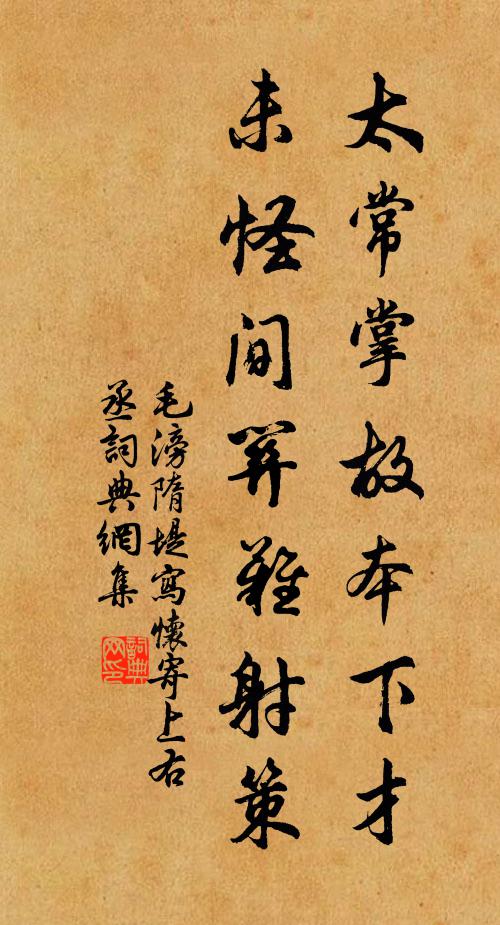 太常掌故本下才
未怪間關難射策
毛滂隋堤寫懷寄上右
丞詞典網集
詞典網印